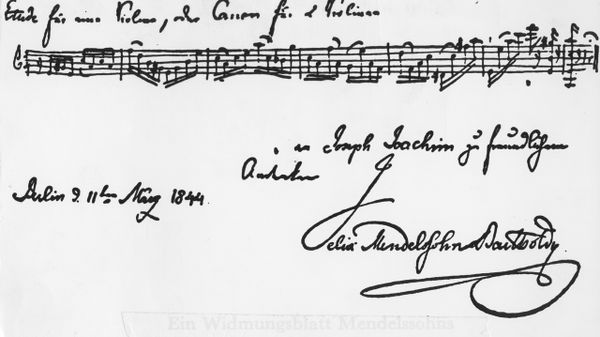 Etude für eine Violine, oder Canon für 2 Violinen
an Joseph Joachim zu freundlichem
Andenken
Berlin d. 11ten März 1844.
Felix Mendelssohn Bartholdy
Ein Widmungsblatt Mendelssohns